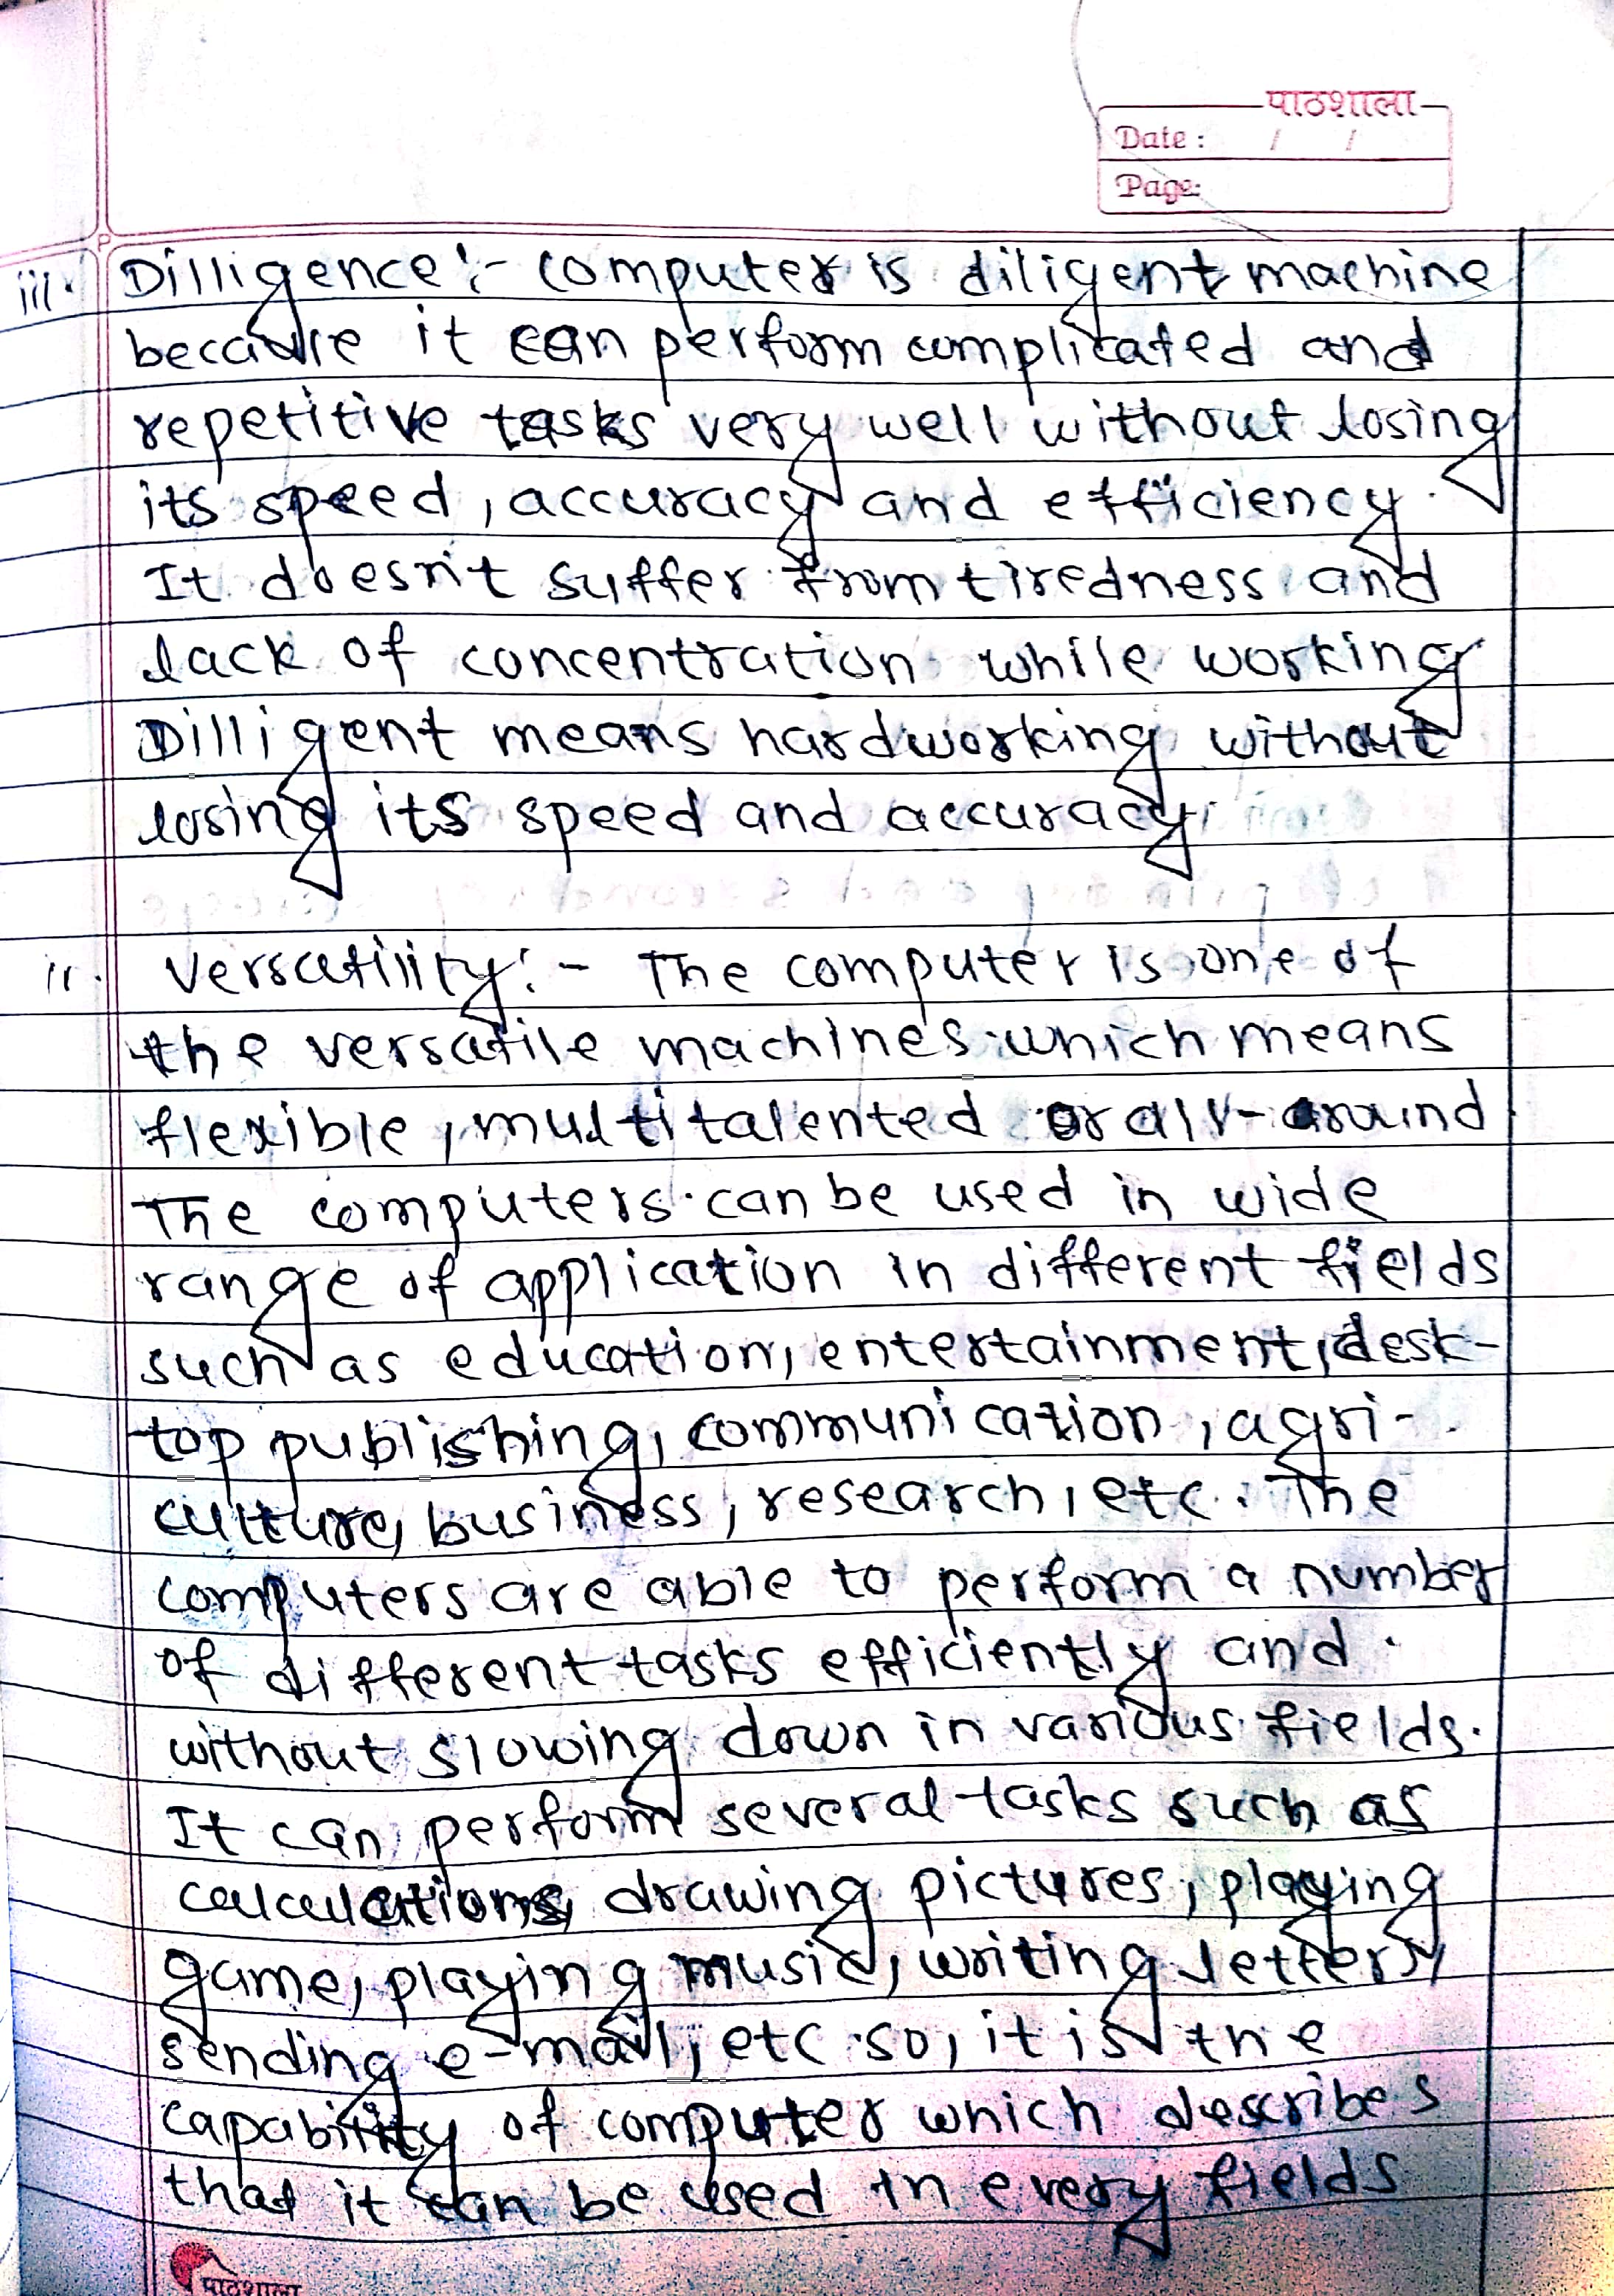 पाठशाला
Date : / /
Page:
iii. Dilligence :- computer is diligent machine
because it can perform complicated and
repetitive tasks very well without losing
its speed, accuracy and efficiency.
It doesn't suffer from tiredness and
lack of concentration while working
Dilligent means hardworking without
losing its speed and accuracy.
ii. Versatility :- The computer is one of
the versatile machines which means
flexible, multitalented or all-around
The computers can be used in wide
range of application in different fields
such as education, entertainment, desk-
top publishing, communication, agri-
culture, business, research, etc. The
computers are able to perform a number
of different tasks efficiently and
without slowing down in various fields.
It can perform several tasks such as
calculations, drawing pictures, playing
game, playing music, writing letters,
sending e-mail, etc so, it is the
capability of computer which describes
that it can be used in every fields
पाठशाला